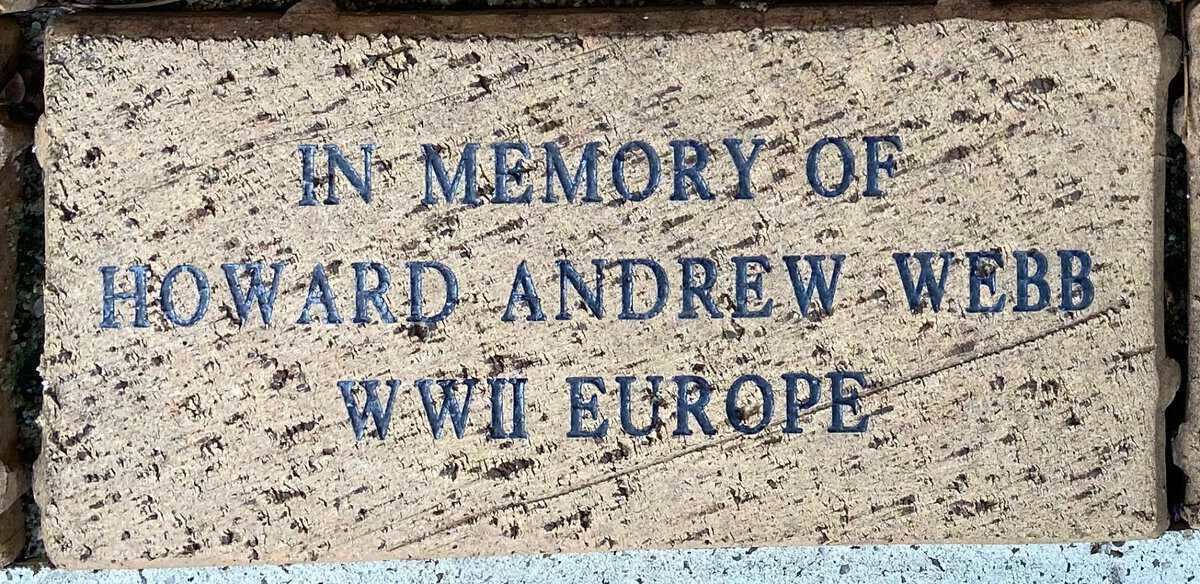 IN MEMORY OF
HOWARD ANDREW WEBB
WWII EUROPE